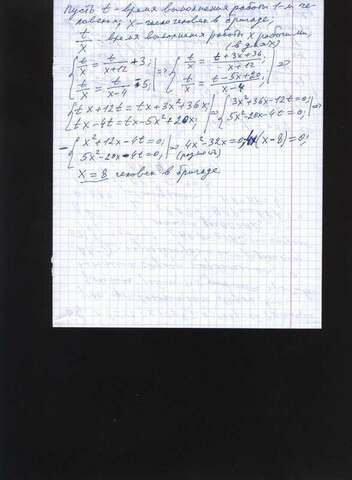 Пусть t - время выполнения работы 1-м че-
ловеком; x - число человек в бригаде;
t/x - время выполнения работы x рабочими,
(в днях)
{ t/x = t/(x+12) + 3; t/x = t/(x-4) - 5; | => { t/x = (t+3x+36)/(x+12); t/x = (t-5x+20)/(x-4); | =>
{ tx+12t = tx+3x²+36x; tx-4t = tx-5x²+20x; | => { 3x²+36x-12t=0; 5x²-20x-4t=0; | =>
- { x²+12x-4t=0; 5x²-20x-4t=0; | => 4x²-32x=0; 4x(x-8)=0;
(разность)
x = 8 человек в бригаде